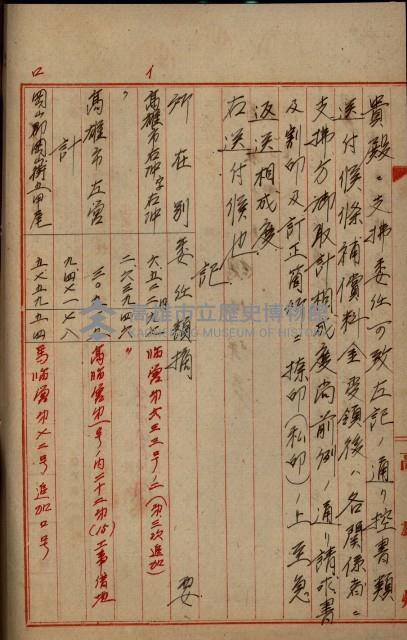 貴殿ニ支拂委任可致左記ノ通リ控書類
送付候條補償料金受領後ハ各關係者ニ
支拂方御取計相成度尚前例ノ通リ請求書
及割印及訂正箇所ニ捺印(私印)ノ上至急
返送相成度
右送付候也
記
所在別 委任額 摘 要
イ 高雄市右沖字右沖
臨營第六三三号ノ二(第三次追加)
〃 二六三九四六 〃
高雄市左營
高臨營第一号ノ内二十二第(15)工事借地
計 九四七一七八
ロ 岡山郡岡山街五甲尾 五七五九五四 馬臨營第七二号追加口号
高雄市立歷史博物館
KAOHSIUNG MUSEUM OF HISTORY
高雄州